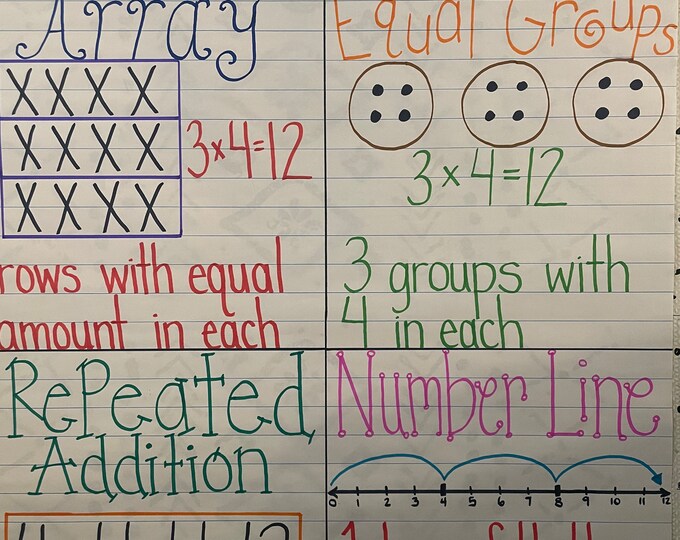 Array
XXXX
XXXX
XXXX
3×4=12
rows with equal
amount in each
Equal Groups
3×4=12
3 groups with
4 in each
RePeated
Addition
Number Line
0 1 2 3 4 5 6 7 8 9 10 11 12